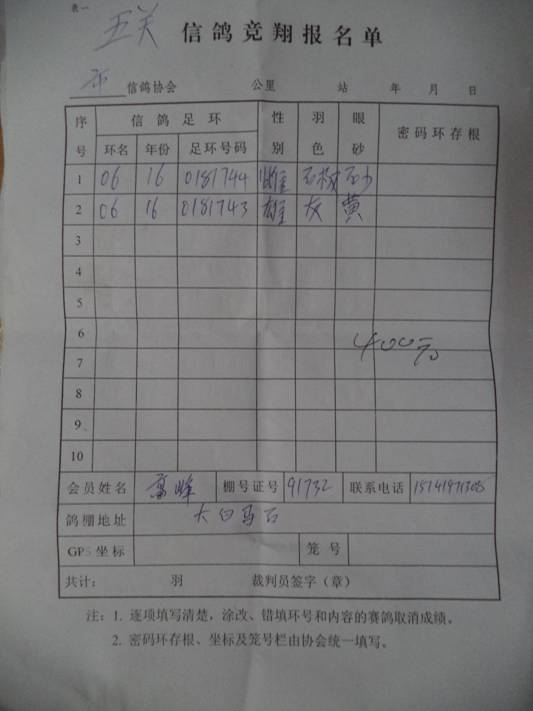 表一
五关 信鸽竞翔报名单
市 信鸽协会 公里 站 年 月 日
序号 信鸽足环 性别 羽色 眼砂 密码环存根
环名 年份 足环号码
1 06 16 0181744 雌 石板 石少
2 06 16 0181743 雄 灰 黄
3
4
5
6
400元
7
8
9
10
会员姓名 高峰 棚号证号 91732 联系电话 15141971305
鸽棚地址 大白马石
GPS坐标 笼号
共计： 羽 裁判员签字（章）
注：1. 逐项填写清楚，涂改、错填环号和内容的赛鸽取消成绩。
2. 密码环存根、坐标及笼号栏由协会统一填写。